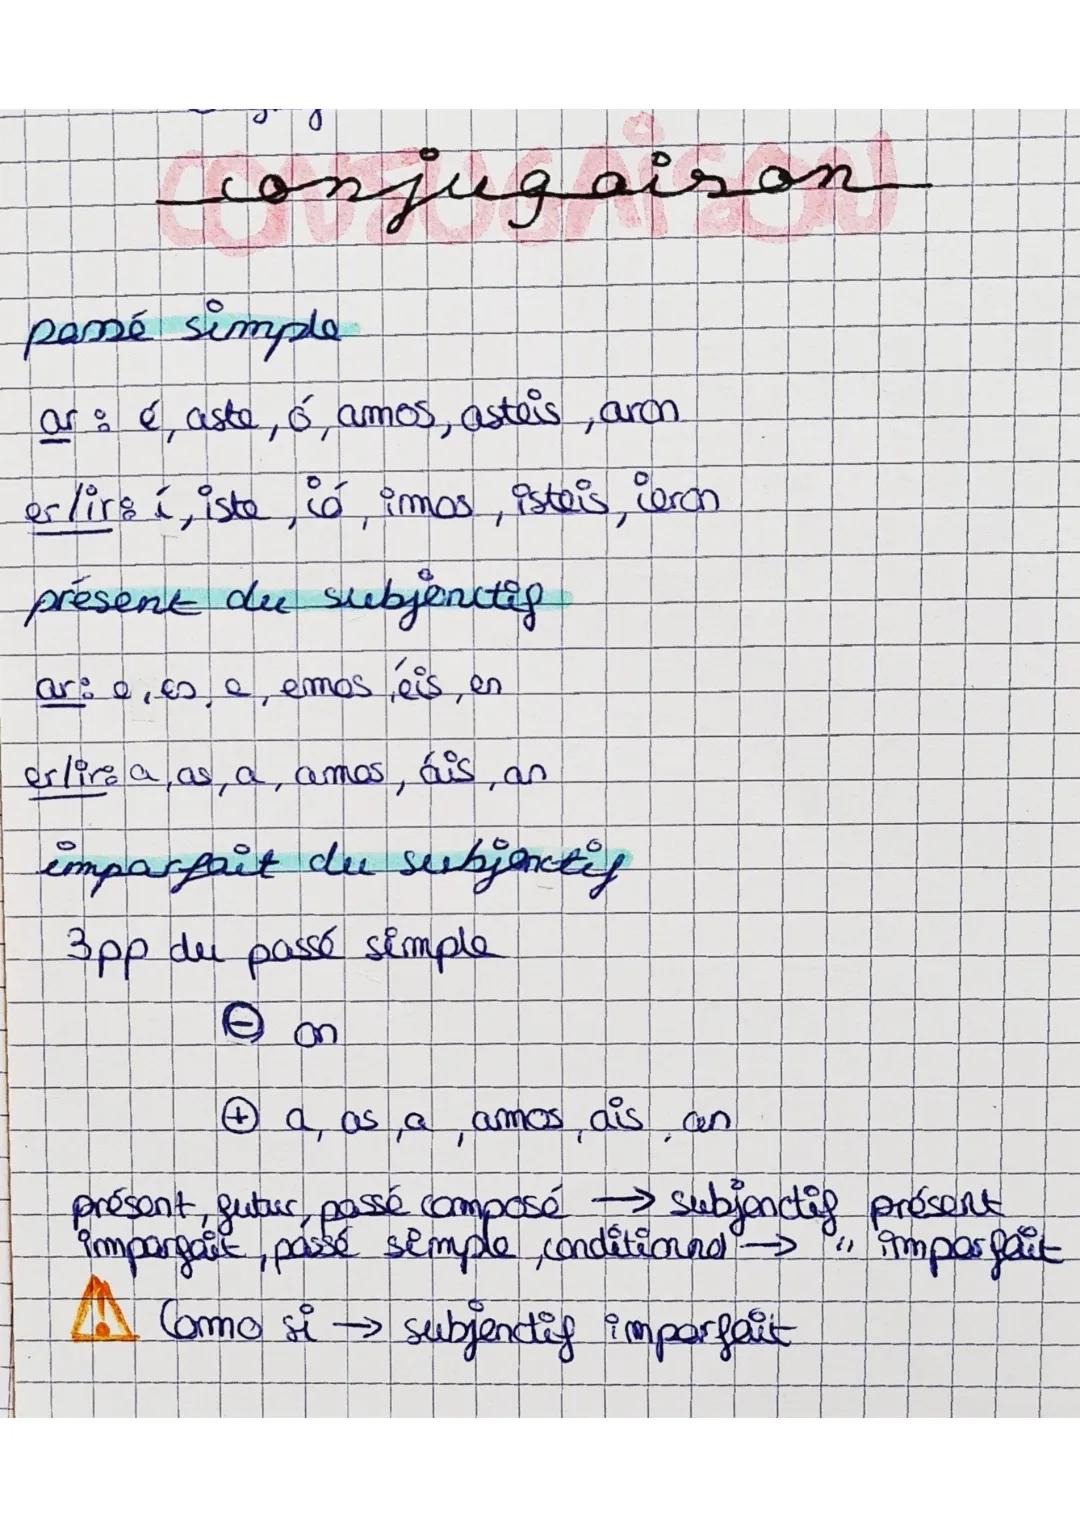 conjugaison
CONJUGAISON
passé simple
ar : é, aste, ó, amos, asteis, aron
er/ir : í, iste, ió, imos, isteis, ieron
présent du subjonctif
ar : e, es, e, emos, éis, en
er/ir : a, as, a, amos, áis, an
imparfait du subjonctif
3pp du passé simple
⊖ on
⊕ a, as, a, amos, ais, an
présent, futur, passé composé → subjonctif présent
imparfait, passé simple, conditionnel → " imparfait
Como si → subjonctif imparfait